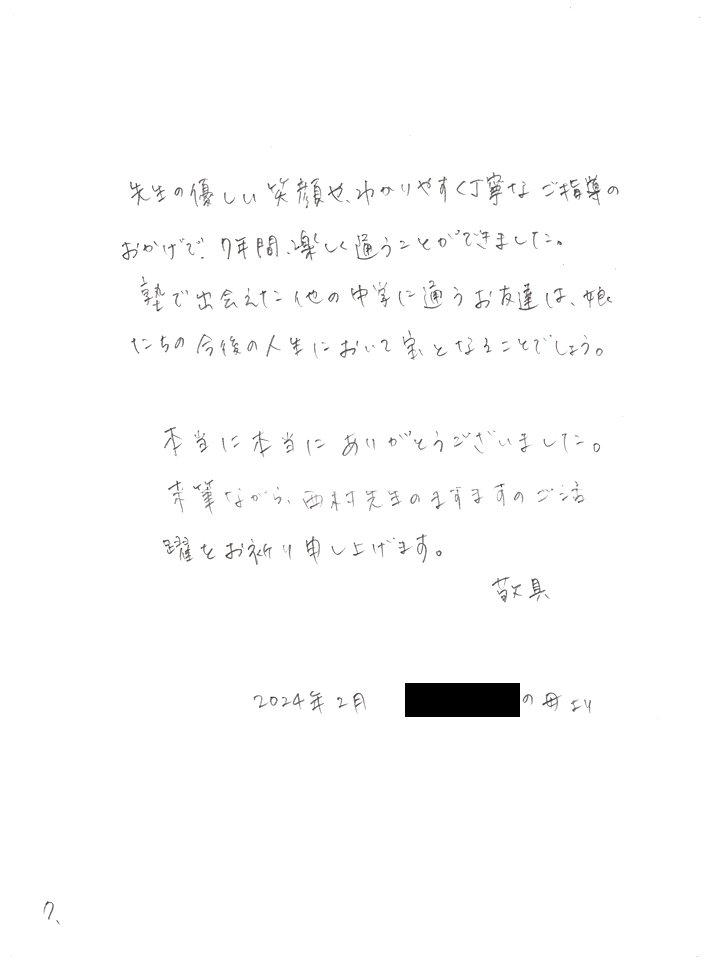 先生の優しい笑顔や、わかりやすく丁寧なご指導の
おかげで、7年間、楽しく通うことができました。
塾で出会えた他の中学に通うお友達は、娘
たちの今後の人生において宝となることでしょう。
本当に本当にありがとうございました。
末筆ながら、西村先生のますますのご活
躍をお祈り申し上げます。
敬具
2024年2月 の母より
7、